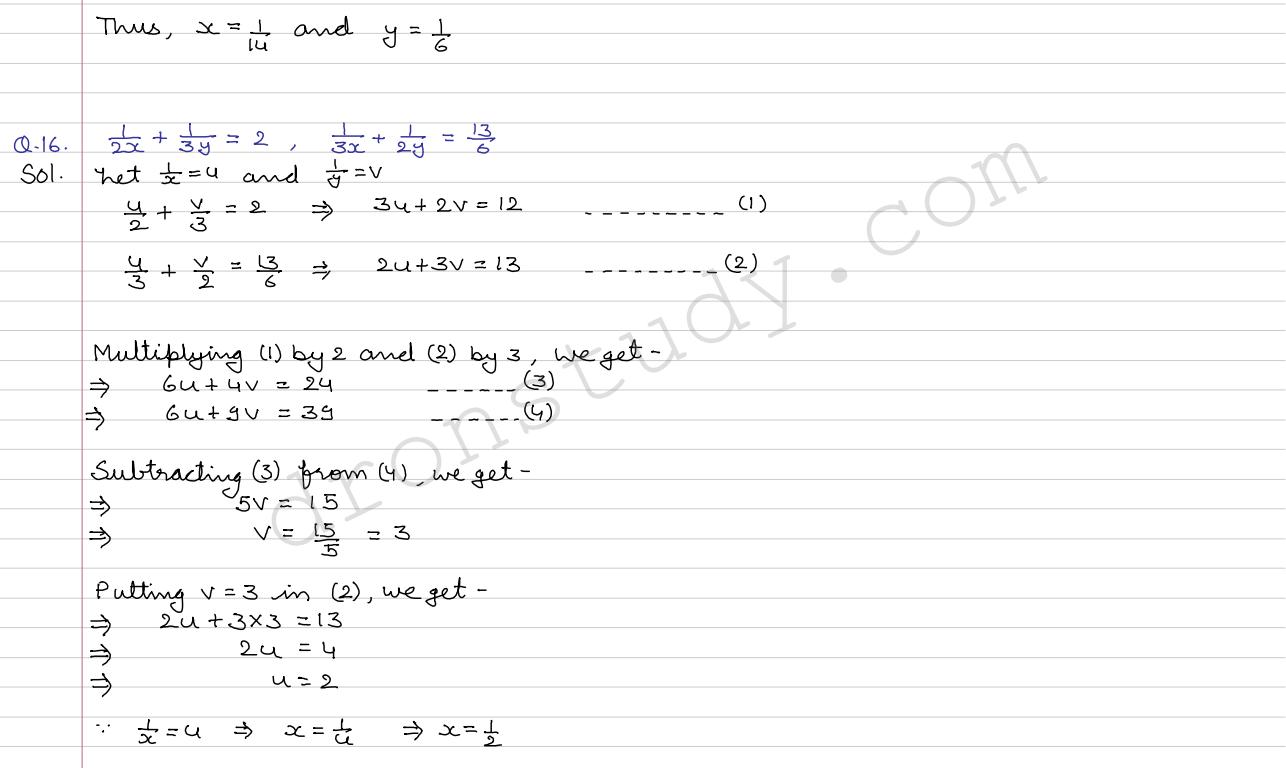 Thus, x = 1/14 and y = 1/6
Q.16. 1/2x + 1/3y = 2 , 1/3x + 1/2y = 13/6
Sol. Let 1/x = u and 1/y = v
u/2 + v/3 = 2 ⇒ 3u + 2v = 12 --------- (1)
u/3 + v/2 = 13/6 ⇒ 2u + 3v = 13 --------- (2)
Multiplying (1) by 2 and (2) by 3, we get -
⇒ 6u + 4v = 24 ------ (3)
⇒ 6u + 9v = 39 ------ (4)
Subtracting (3) from (4), we get -
⇒ 5v = 15
⇒ v = 15/5 = 3
Putting v = 3 in (2), we get -
⇒ 2u + 3×3 = 13
⇒ 2u = 4
⇒ u = 2
∵ 1/x = u ⇒ x = 1/u ⇒ x = 1/2
dronstudy.com